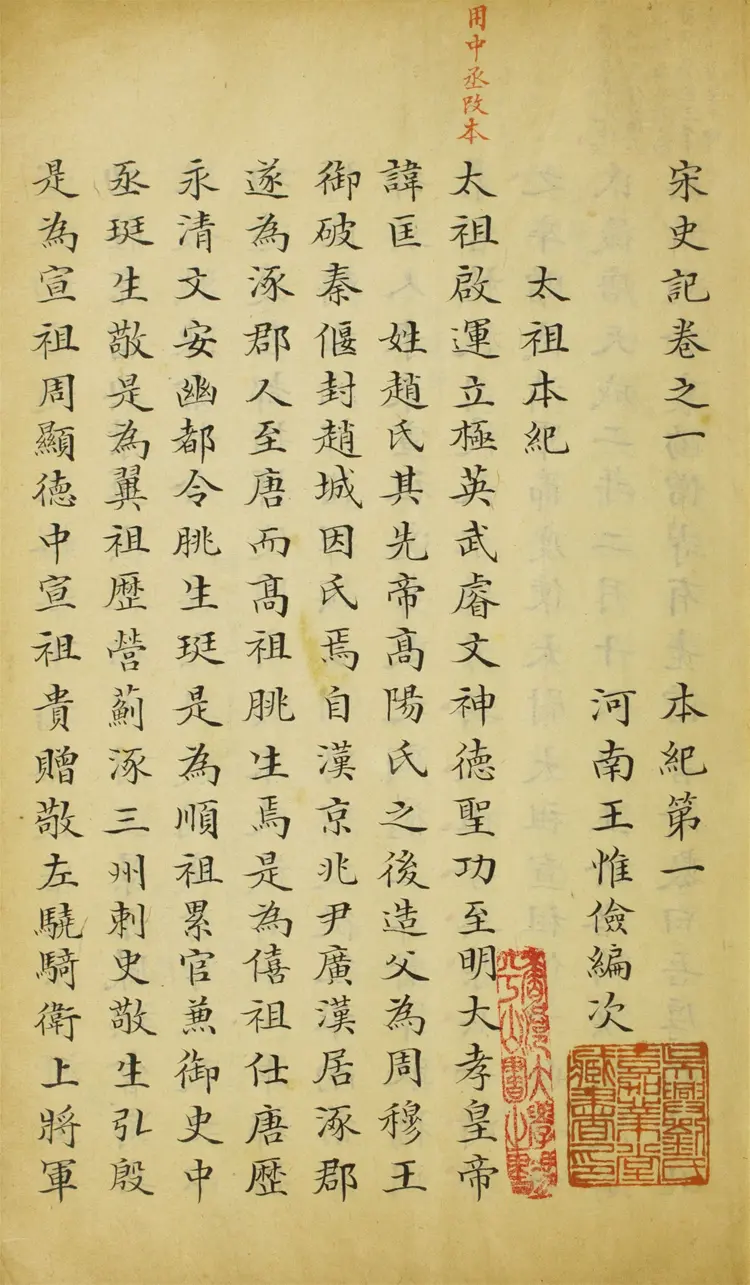 宋史記卷之一 本紀第一
河南王惟儉編次
太祖本紀
用中丞改本
太祖啟運立極英武睿文神德聖功至明大孝皇帝
諱匡 姓趙氏其先帝高陽氏之後造父為周穆王
御破秦偃封趙城因氏焉自漢京兆尹廣漢居涿郡
遂為涿郡人至唐而高祖脁生焉是為僖祖仕唐歷
永清文安幽都令脁生珽是為順祖累官兼御史中
丞珽生敬是為翼祖歷營薊涿三州刺史敬生弘殷
是為宣祖周顯德中宣祖貴贈敬左驍騎衛上將軍
吳興劉氏
嘉業堂
藏書印